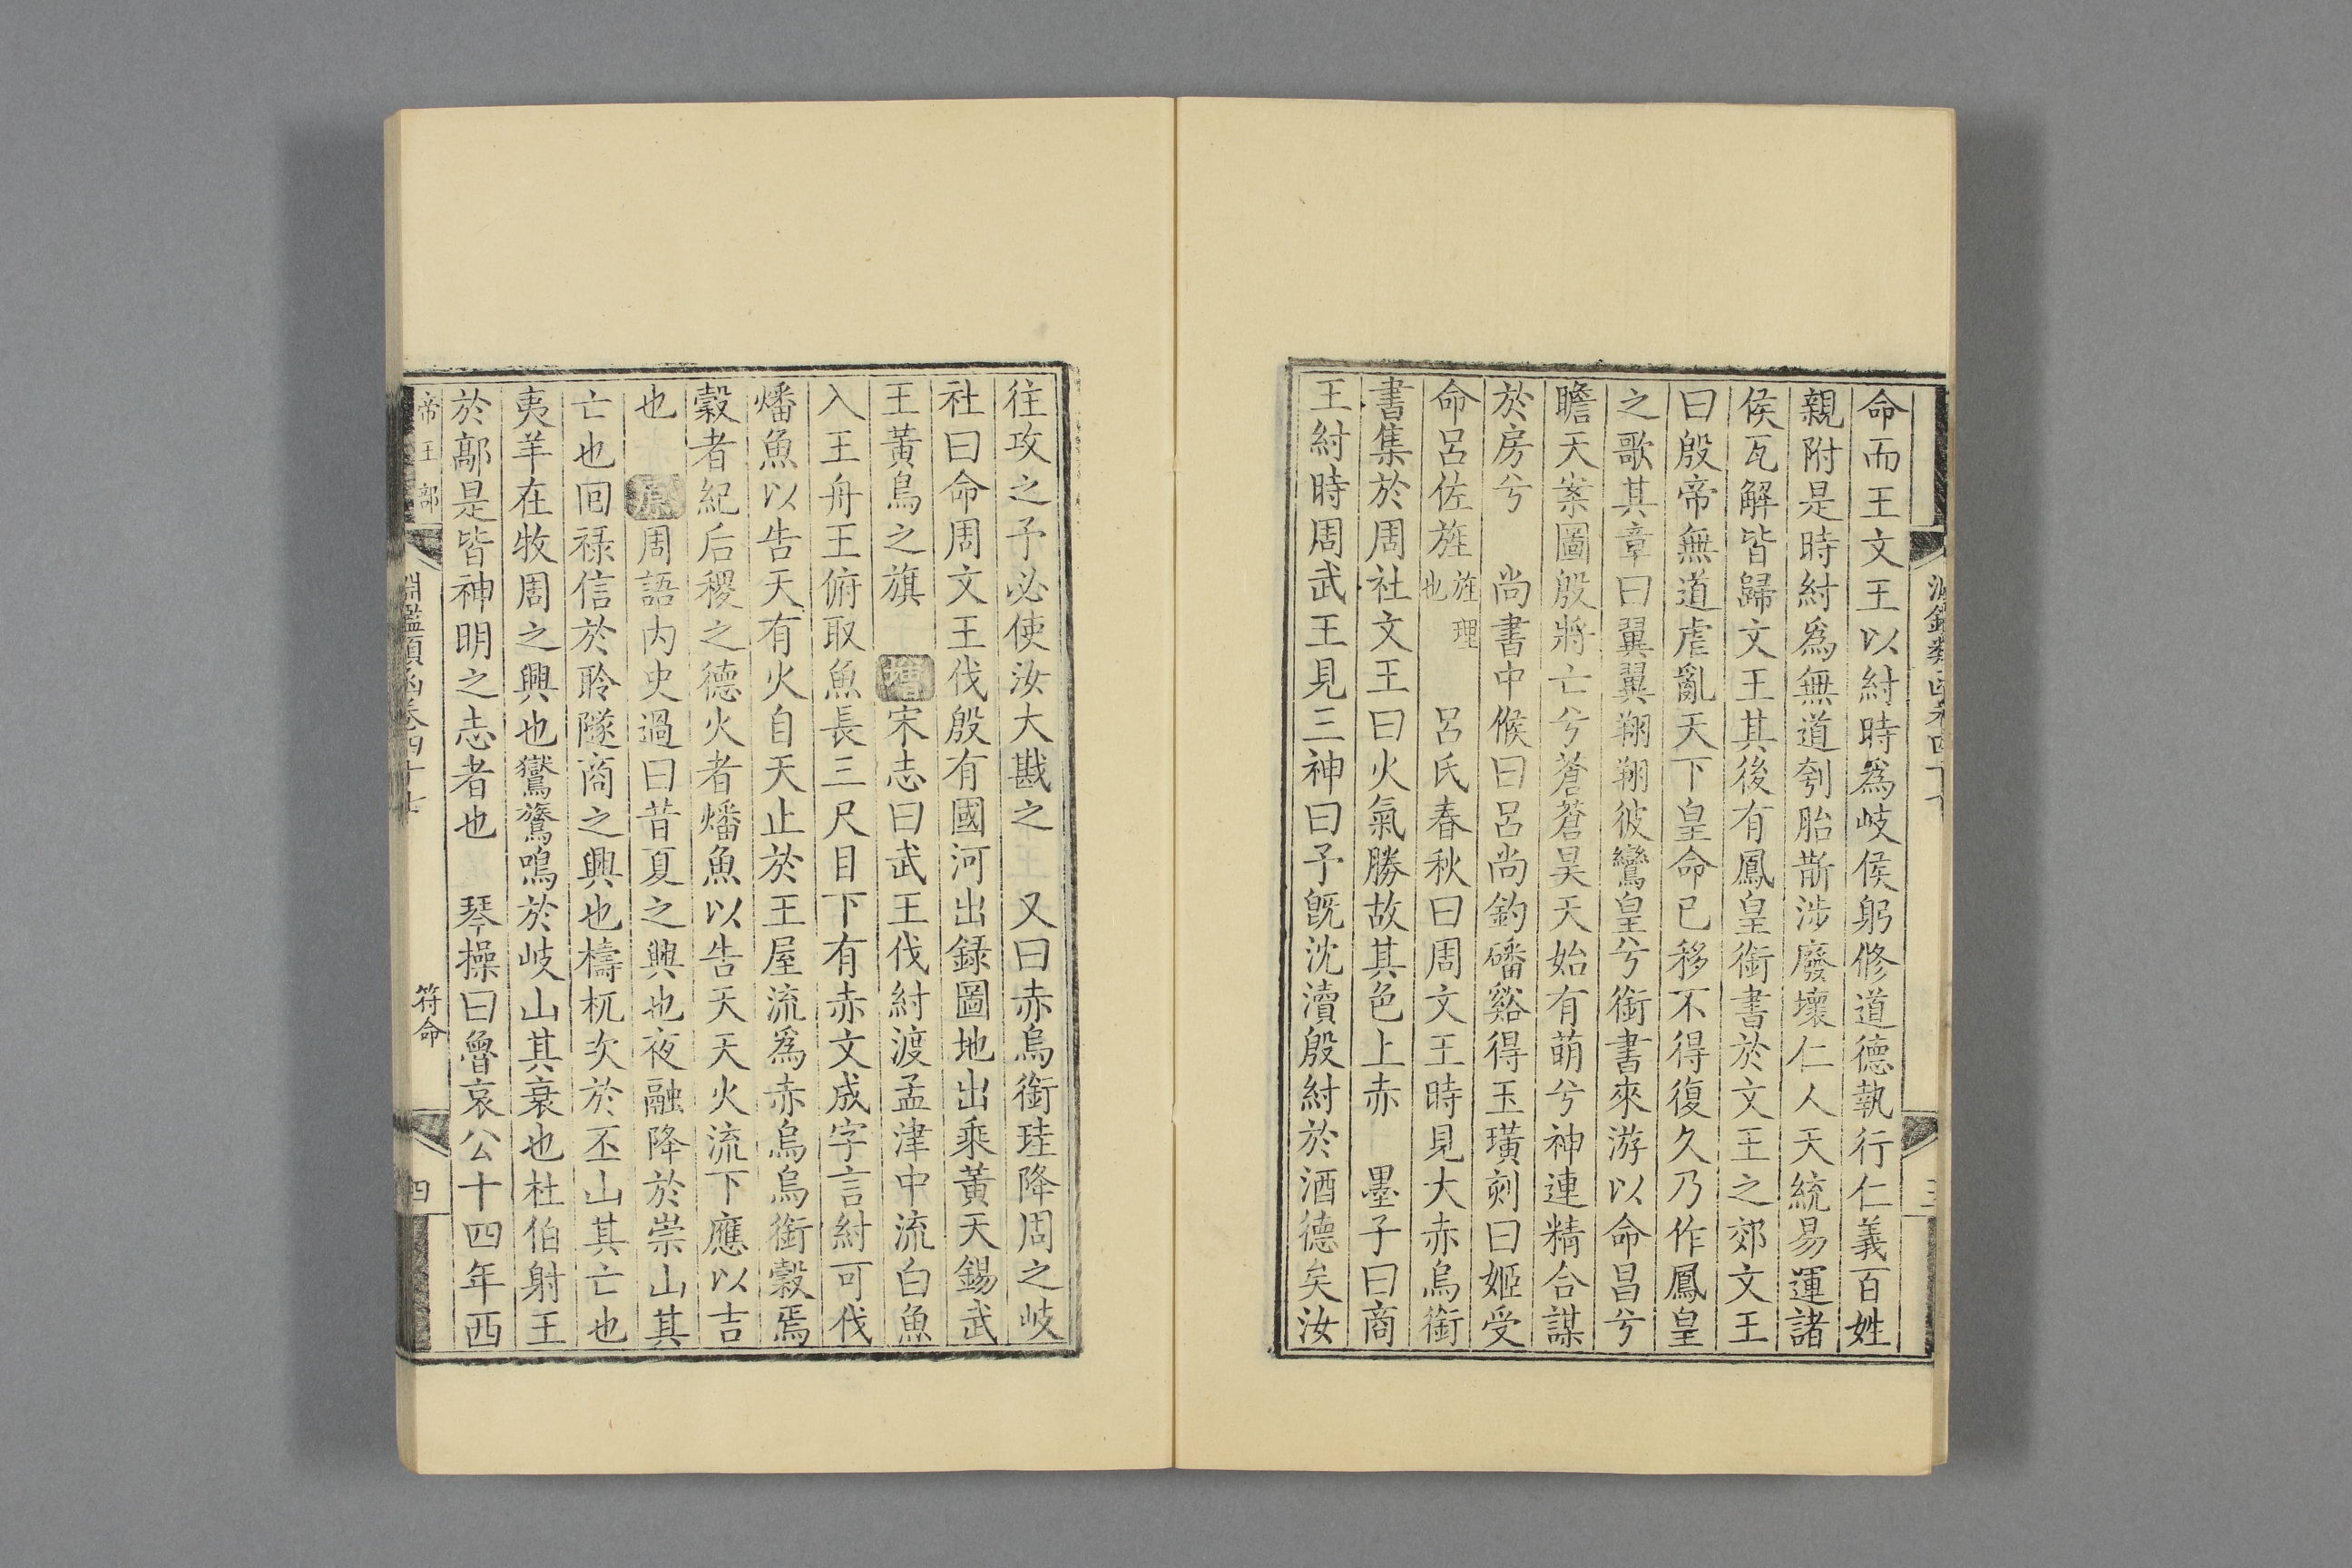 命而王文王以紂時爲岐侯躬修道德執行仁義百姓
親附是時紂爲無道刳胎斮涉廢壞仁人天統易運諸
侯瓦解皆歸文王其後有鳳皇銜書於文王之郊文王
曰殷帝無道虐亂天下皇命已移不得復久乃作鳳皇
之歌其章曰翼翼翔翔彼鸞皇兮銜書來游以命昌兮
瞻天案圖殷將亡兮蒼蒼昊天始有萌兮神連精合謀
於房兮 尚書中候曰呂尚釣磻谿得玉璜刻曰姬受
命呂佐旌旌理也 呂氏春秋曰周文王時見大赤烏銜
書集於周社文王曰火氣勝故其色上赤 墨子曰商
王紂時周武王見三神曰予旣沈瀆殷紂於酒德矣汝
往攻之予必使汝大戡之 又曰赤烏銜珪降周之岐
社曰命周文王伐殷有國河出錄圖地出乘黃天錫武
王黃鳥之旗 增宋志曰武王伐紂渡孟津中流白魚
入王舟王俯取魚長三尺目下有赤文成字言紂可伐
燔魚以告天有火自天止於王屋流爲赤烏烏銜穀焉
穀者紀后稷之德火者燔魚以告天天火流下應以吉
也 原周語内史過曰昔夏之興也夜融降於崇山其
亡也回祿信於聆隧商之興也檮杌次於丕山其亡也
夷羊在牧周之興也鸑鷟鳴於岐山其衰也杜伯射王
於鄗是皆神明之志者也 琴操曰魯哀公十四年西
帝王部 淵鑑類函卷四十七 符命 四